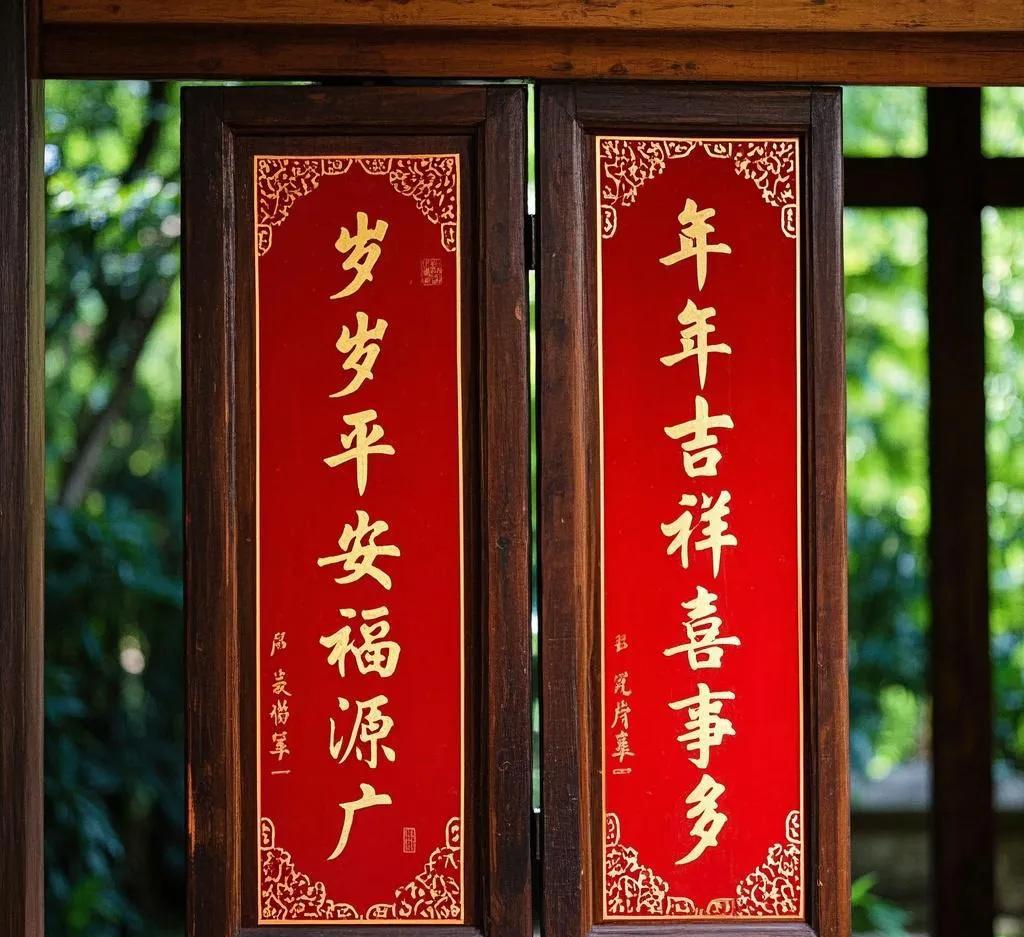 年年吉祥喜事多
岁岁平安福源广